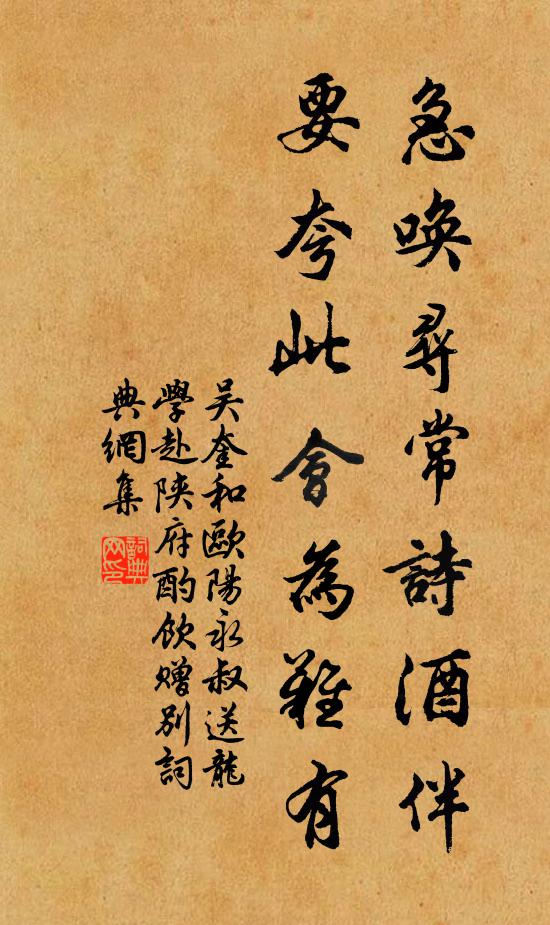 急喚尋常詩酒伴
要夸此會為難有
吴奎和歐陽永叔送龍
學赴陝府酌飲贈别詞
典網集
詞典
网印